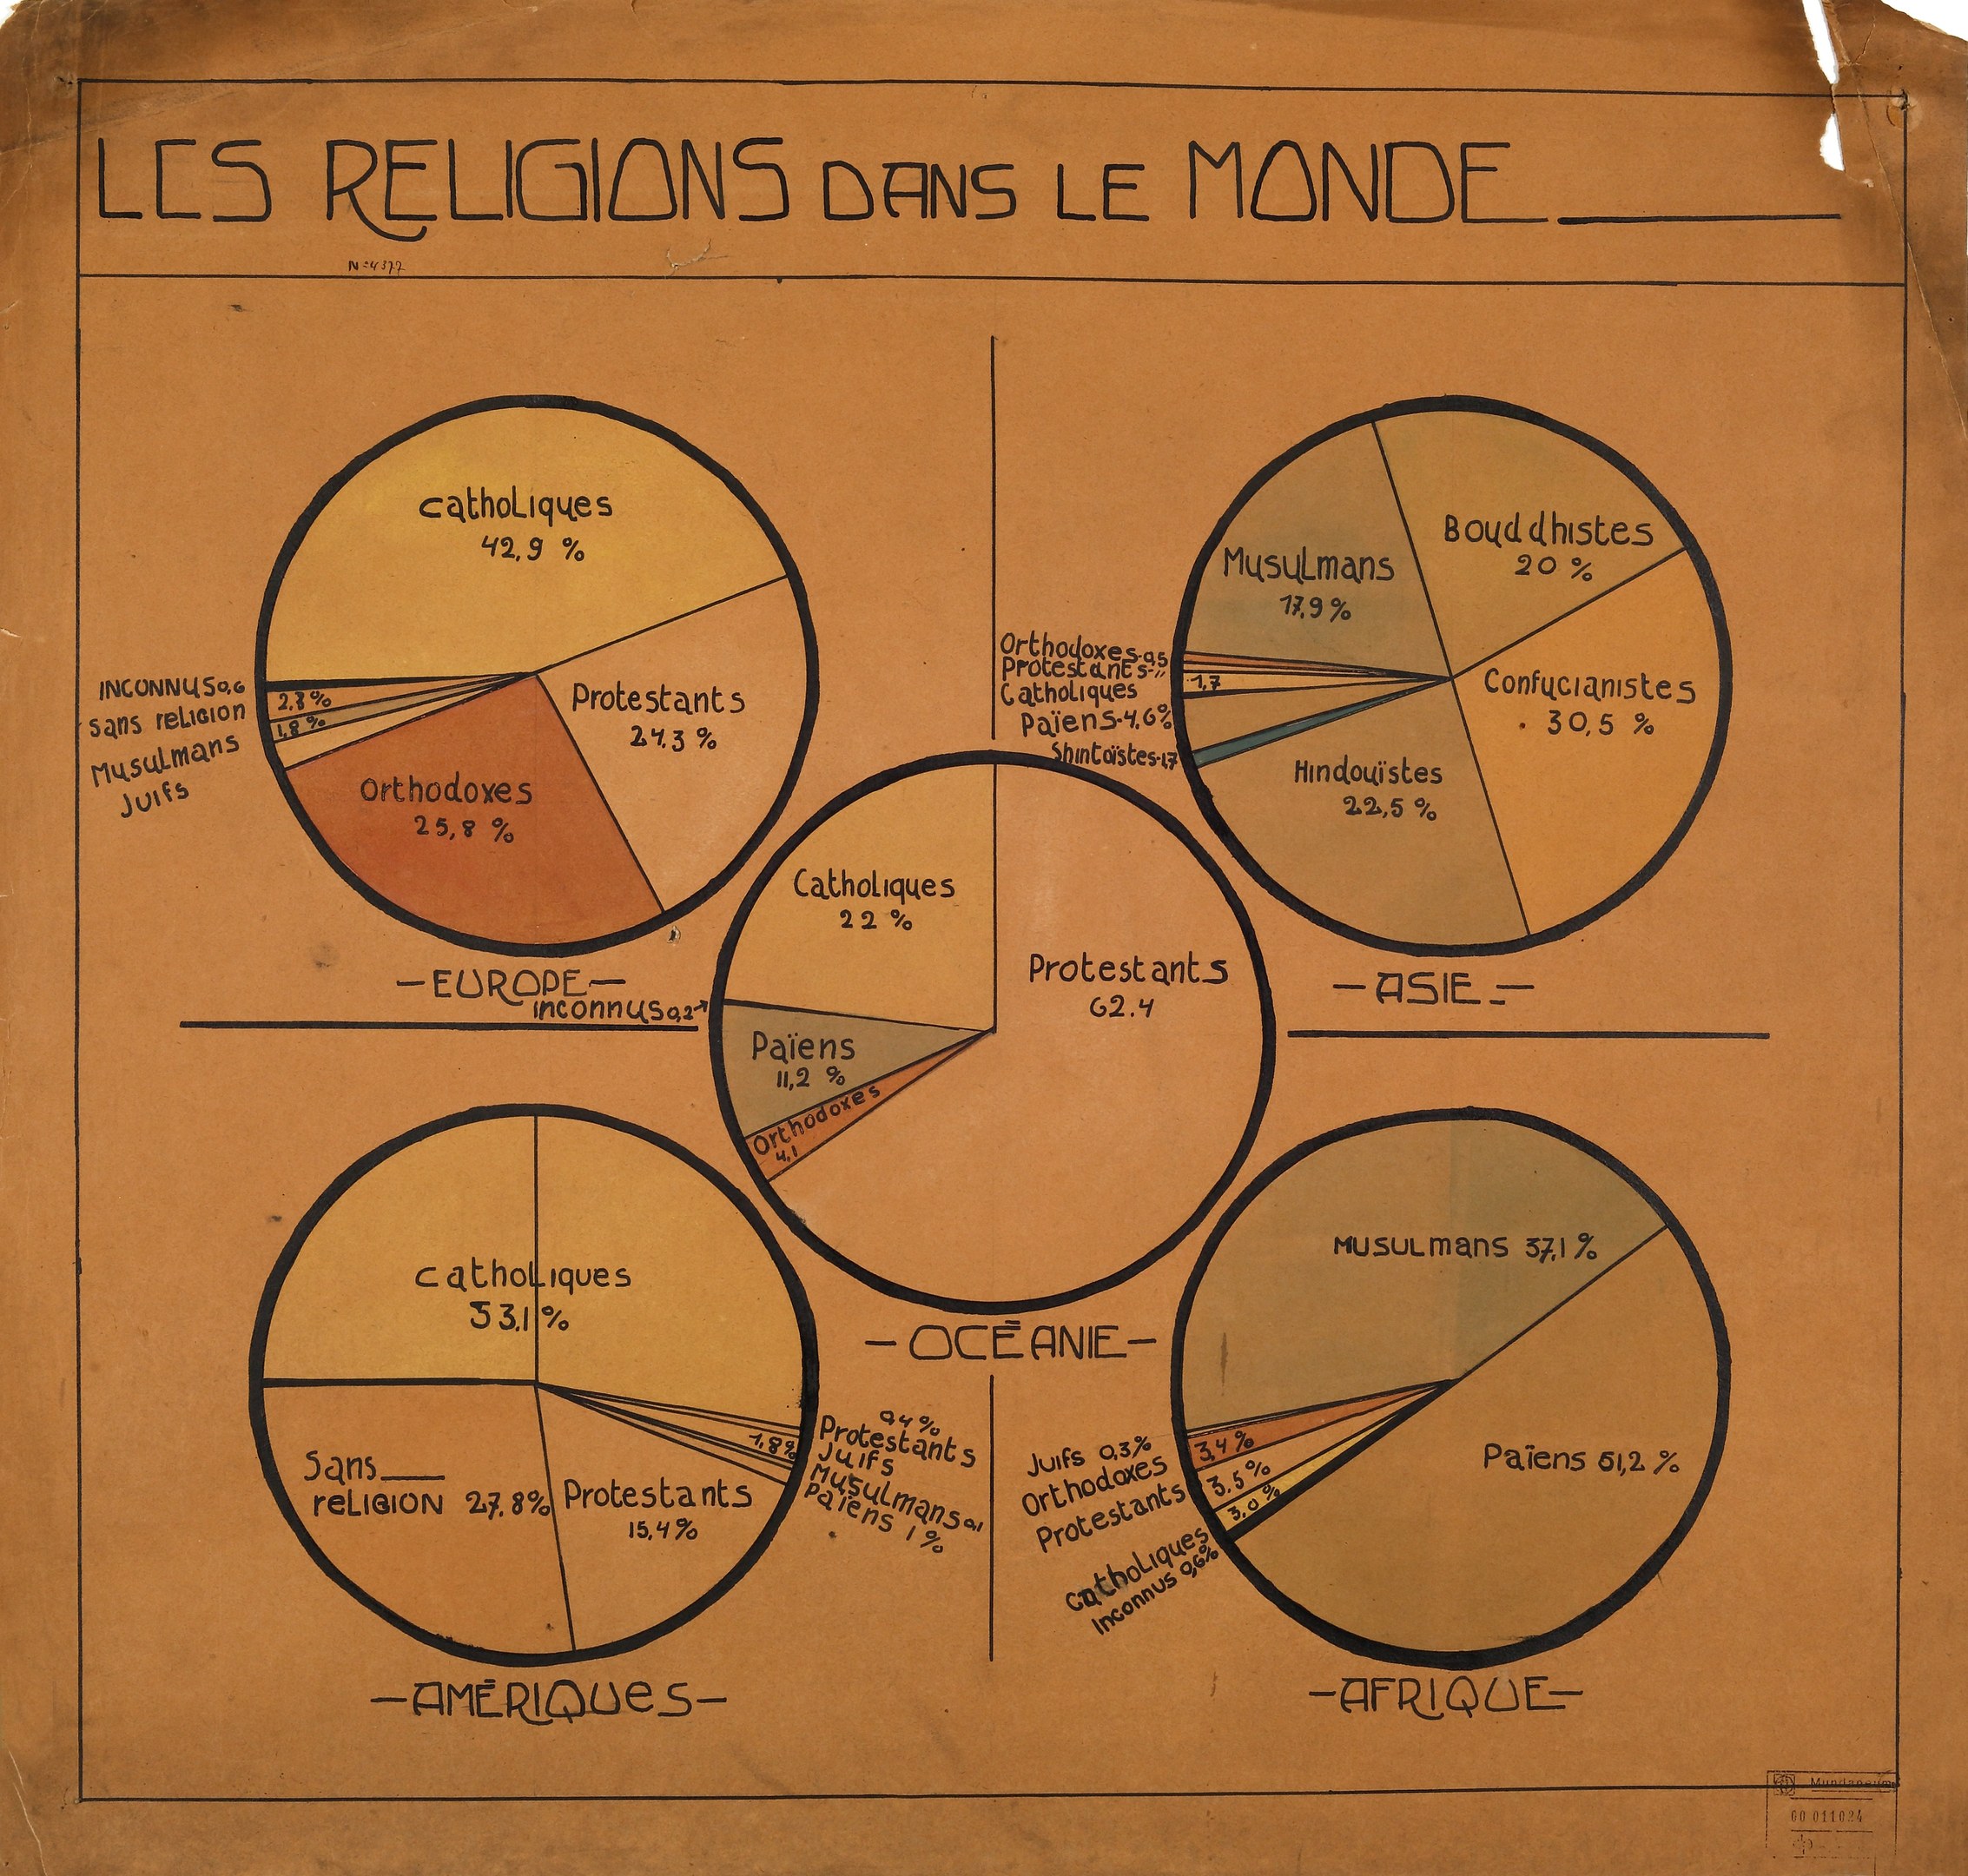 LES RELIGIONS DANS LE MONDE
N° 4377
Catholiques
42,9 %
Protestants
24,3 %
Orthodoxes
25,8 %
INCONNUS 0,6
2,8 %
sans religion
1,8 %
Musulmans
Juifs
- EUROPE -
Bouddhistes
20 %
Musulmans
17,9 %
Confucianistes
30,5 %
Hindouïstes
22,5 %
Orthodoxes - 0,5
Protestants - "
Catholiques
1,7
Païens - 4,6 %
Shintoïstes - 1,7
- ASIE -
Catholiques
22 %
Protestants
62.4
inconnus 0,2
Païens
11,2 %
Orthodoxes
4,1
- OCÉANIE -
Catholiques
53,1 %
Sans
religion 27,8 %
Protestants
15,4 %
0,4 %
Protestants
1,8 %
Juifs
Musulmans 0,1
Païens 1 %
- AMÉRIQUES -
Musulmans 37,1 %
Païens 51,2 %
Juifs 0,3 %
Orthodoxes
3,4 %
Protestants
3.5 %
Catholiques
3,0 %
Inconnus 0,6 %
- AFRIQUE -
Mundaneum
00 011024